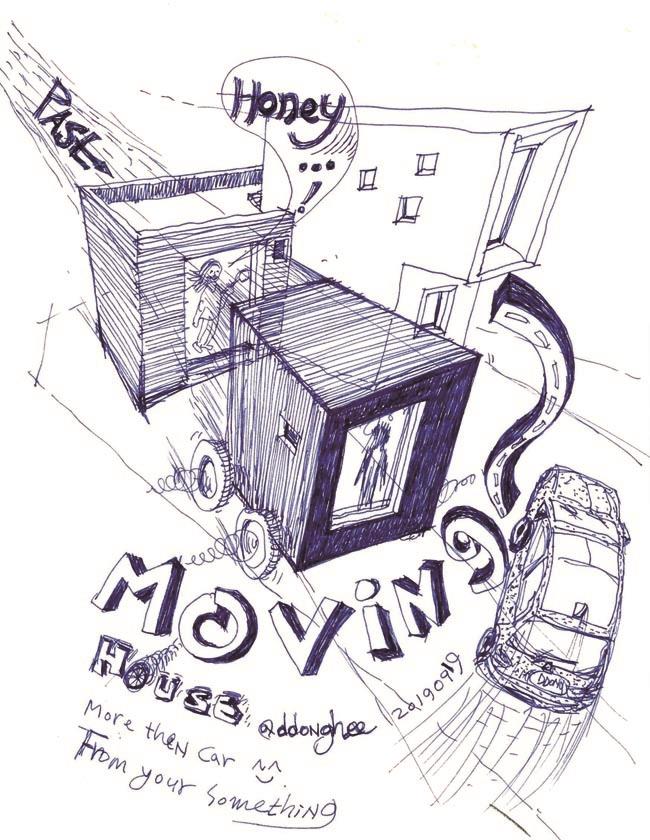 PAST
Honey
...!
MOVING
HOUSE
@ddonghee
20190919
More then car ^^
From your something